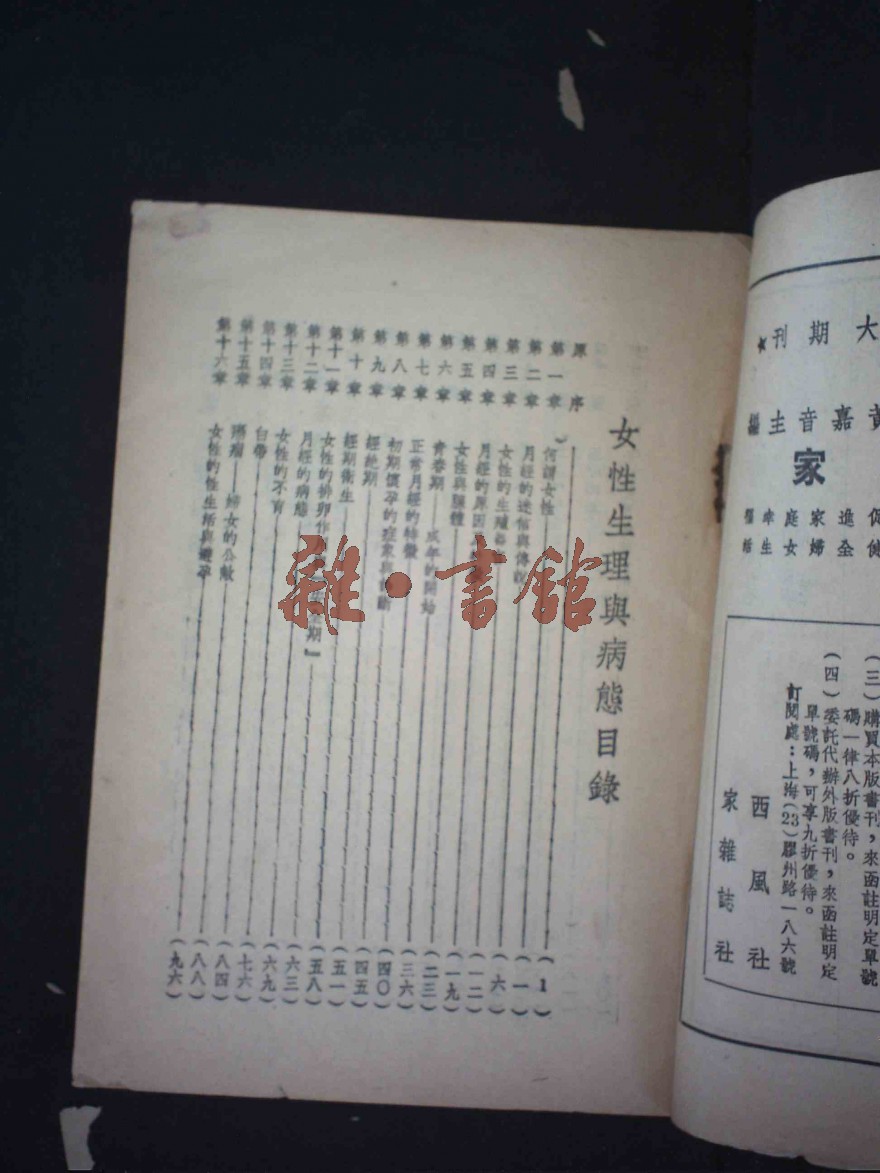 大期刊★
黃嘉音主編
家
促進家庭幸福
健全婦女生活
(三)購買本版書刊,來函註明定單號
碼一律八折優待。
(四)委託代辦外版書刊,來函註明定
單號碼,可享九折優待。
訂閱處:上海(23)膠州路一八六號
西風社
家雜誌社
女性生理與病態目錄
原序(1)
第一章 何謂女性(一)
第二章 月經的迷信與傳說(六)
第三章 女性的生殖器(一二)
第四章 月經的原因(一九)
第五章 女性與腺體(二三)
第六章 青春期——成年的開始(三六)
第七章 正常月經的特徵(四〇)
第八章 初期懷孕的症象與(四五)
第九章 經絕期(五一)
第十章 經期衛生(五八)
第十一章 女性的排卵作期』(六三)
第十二章 月經的病態(六九)
第十三章 女性的不育(七六)
第十四章 白帶(八四)
第十五章 癌瘤——婦女的公敵(八八)
第十六章 女性的性生活與避孕(九六)
雜·書館